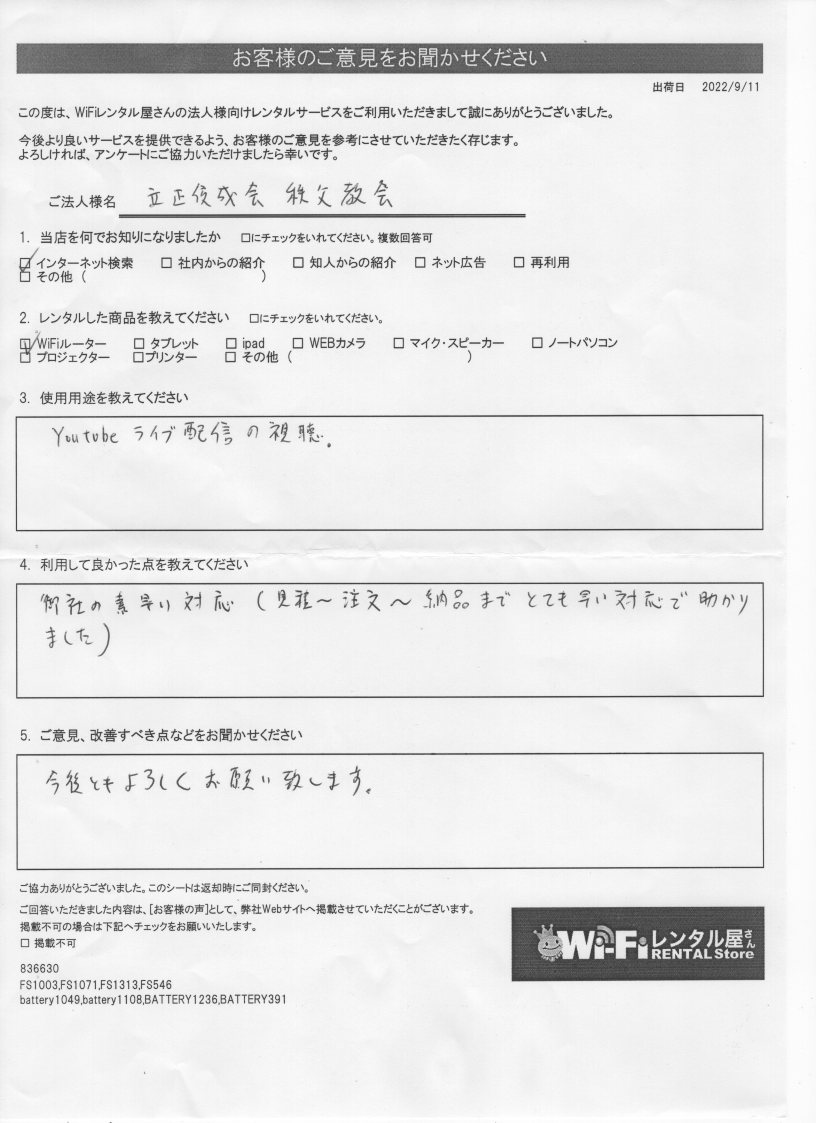 お客様のご意見をお聞かせください
出荷日 2022/9/11
この度は、WiFiレンタル屋さんの法人様向けレンタルサービスをご利用いただきまして誠にありがとうございました。
今後より良いサービスを提供できるよう、お客様のご意見を参考にさせていただきたく存じます。
よろしければ、アンケートにご協力いただけましたら幸いです。
ご法人様名 立正佼成会 秩父教会
1. 当店を何でお知りになりましたか □にチェックをいれてください。複数回答可
☑ インターネット検索 □ 社内からの紹介 □ 知人からの紹介 □ ネット広告 □ 再利用
□ その他 ( )
2. レンタルした商品を教えてください □にチェックをいれてください。
☑ WiFiルーター □ タブレット □ ipad □ WEBカメラ □ マイク・スピーカー □ ノートパソコン
□ プロジェクター □プリンター □ その他 ( )
3. 使用用途を教えてください
Youtube ライブ配信の視聴。
4. 利用して良かった点を教えてください
御社の素早い対応 (見積～注文～納品までとても早い対応で助かり
ました)
5. ご意見、改善すべき点などをお聞かせください
今後ともよろしくお願い致します。
ご協力ありがとうございました。このシートは返却時にご同封ください。
ご回答いただきました内容は、[お客様の声]として、弊社Webサイトへ掲載させていただくことがございます。
掲載不可の場合は下記へチェックをお願いいたします。
□ 掲載不可
Wi-Fiレンタル屋さん
RENTAL Store
836630
FS1003,FS1071,FS1313,FS546
battery1049,battery1108,BATTERY1236,BATTERY391